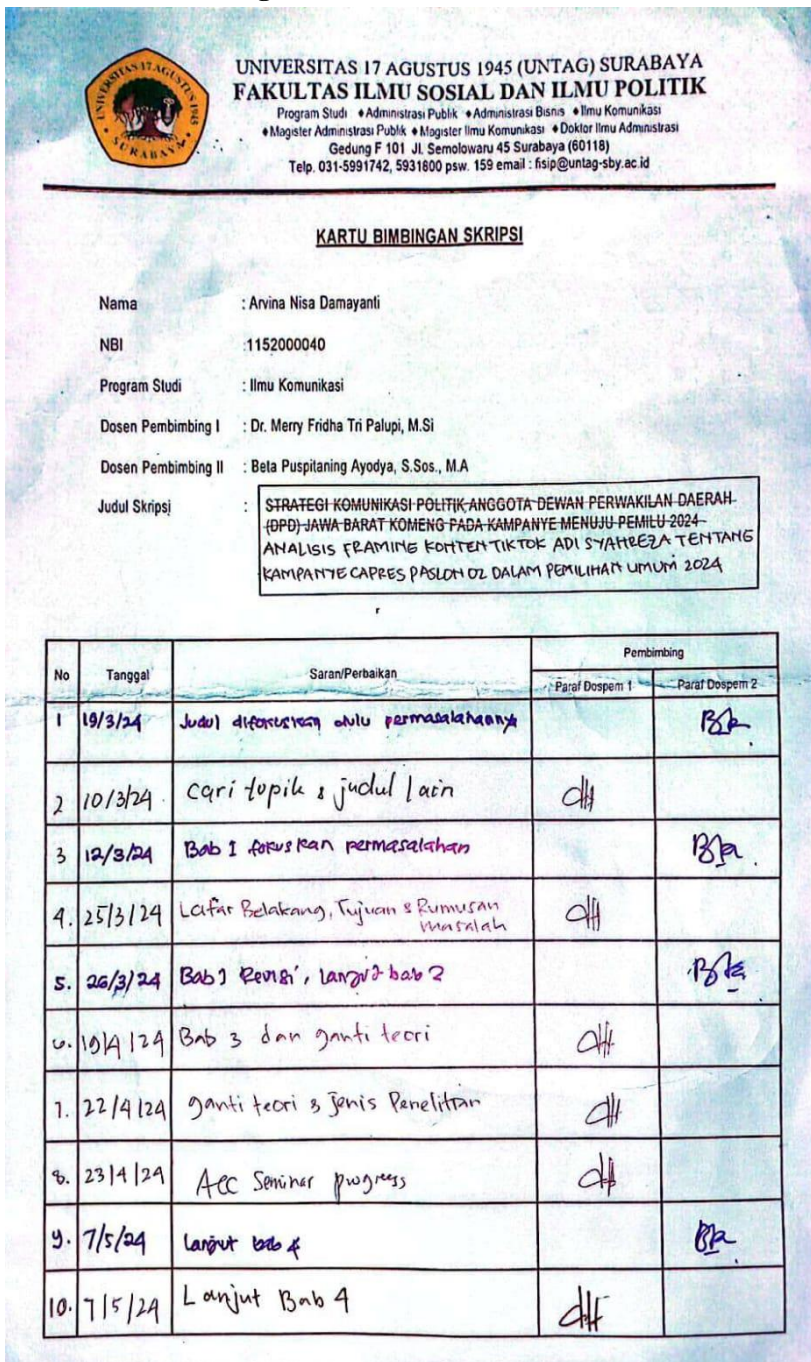 UNIVERSITAS 17 AGUSTUS 1945
SURABAYA
UNIVERSITAS 17 AGUSTUS 1945 (UNTAG) SURABAYA
FAKULTAS ILMU SOSIAL DAN ILMU POLITIK
Program Studi ♦Administrasi Publik ♦Administrasi Bisnis ♦Ilmu Komunikasi
♦Magister Administrasi Publik ♦Magister Ilmu Komunikasi ♦Doktor Ilmu Administrasi
Gedung F 101 Jl. Semolowaru 45 Surabaya (60118)
Telp. 031-5991742, 5931800 psw. 159 email : fisip@untag-sby.ac.id
KARTU BIMBINGAN SKRIPSI
Nama : Arvina Nisa Damayanti
NBI :1152000040
Program Studi : Ilmu Komunikasi
Dosen Pembimbing I : Dr. Merry Fridha Tri Palupi, M.Si
Dosen Pembimbing II : Beta Puspitaning Ayodya, S.Sos., M.A
Judul Skripsi : STRATEGI KOMUNIKASI POLITIK ANGGOTA DEWAN PERWAKILAN DAERAH
(DPD) JAWA BARAT KOMENG PADA KAMPANYE MENUJU PEMILU 2024
ANALISIS FRAMING KONTEN TIKTOK ADI SYAHREZA TENTANG
KAMPANYE CAPRES PASLON 02 DALAM PEMILIHAN UMUM 2024
No Tanggal Saran/Perbaikan Pembimbing
Paraf Dospem 1 Paraf Dospem 2
1 19/3/24 Judul difokuskan dulu permasalahannya
2 10/3/24 Cari topik & judul lain
3 12/3/24 Bab I fokuskan permasalahan
4. 25/3/24 Latar Belakang, Tujuan & Rumusan
masalah
5. 26/3/24 Bab 1 Revisi, lanjut bab 2
6. 19/4/24 Bab 3 dan ganti teori
7. 22/4/24 ganti teori & Jenis Penelitian
8. 23/4/24 Acc Seminar progress
9. 7/5/24 Lanjut bab 4
10. 7/5/24 Lanjut Bab 4